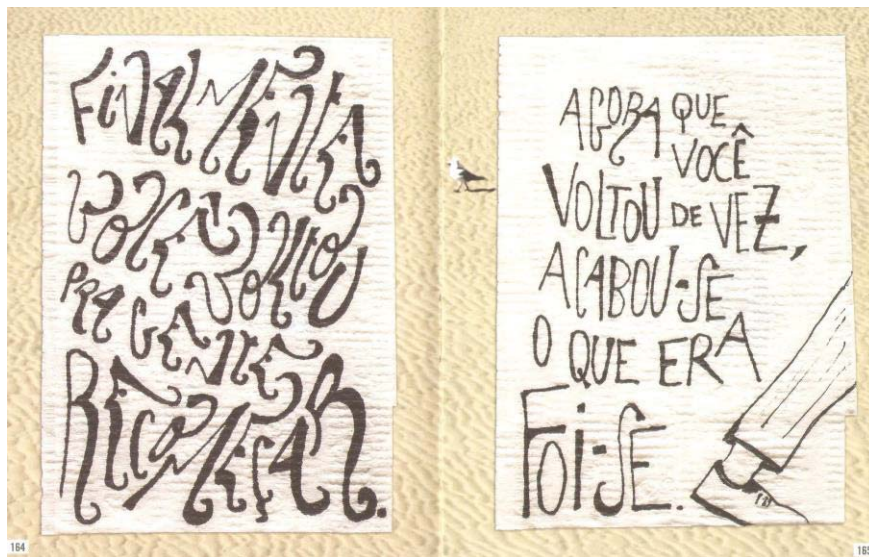 FINALMENTE
VOCÊ VOLTOU
PRA GENTE
RECOMEÇAR.
164
AGORA QUE
VOCÊ
VOLTOU DE VEZ,
ACABOU-SE
O QUE ERA
FOI-SE.
165